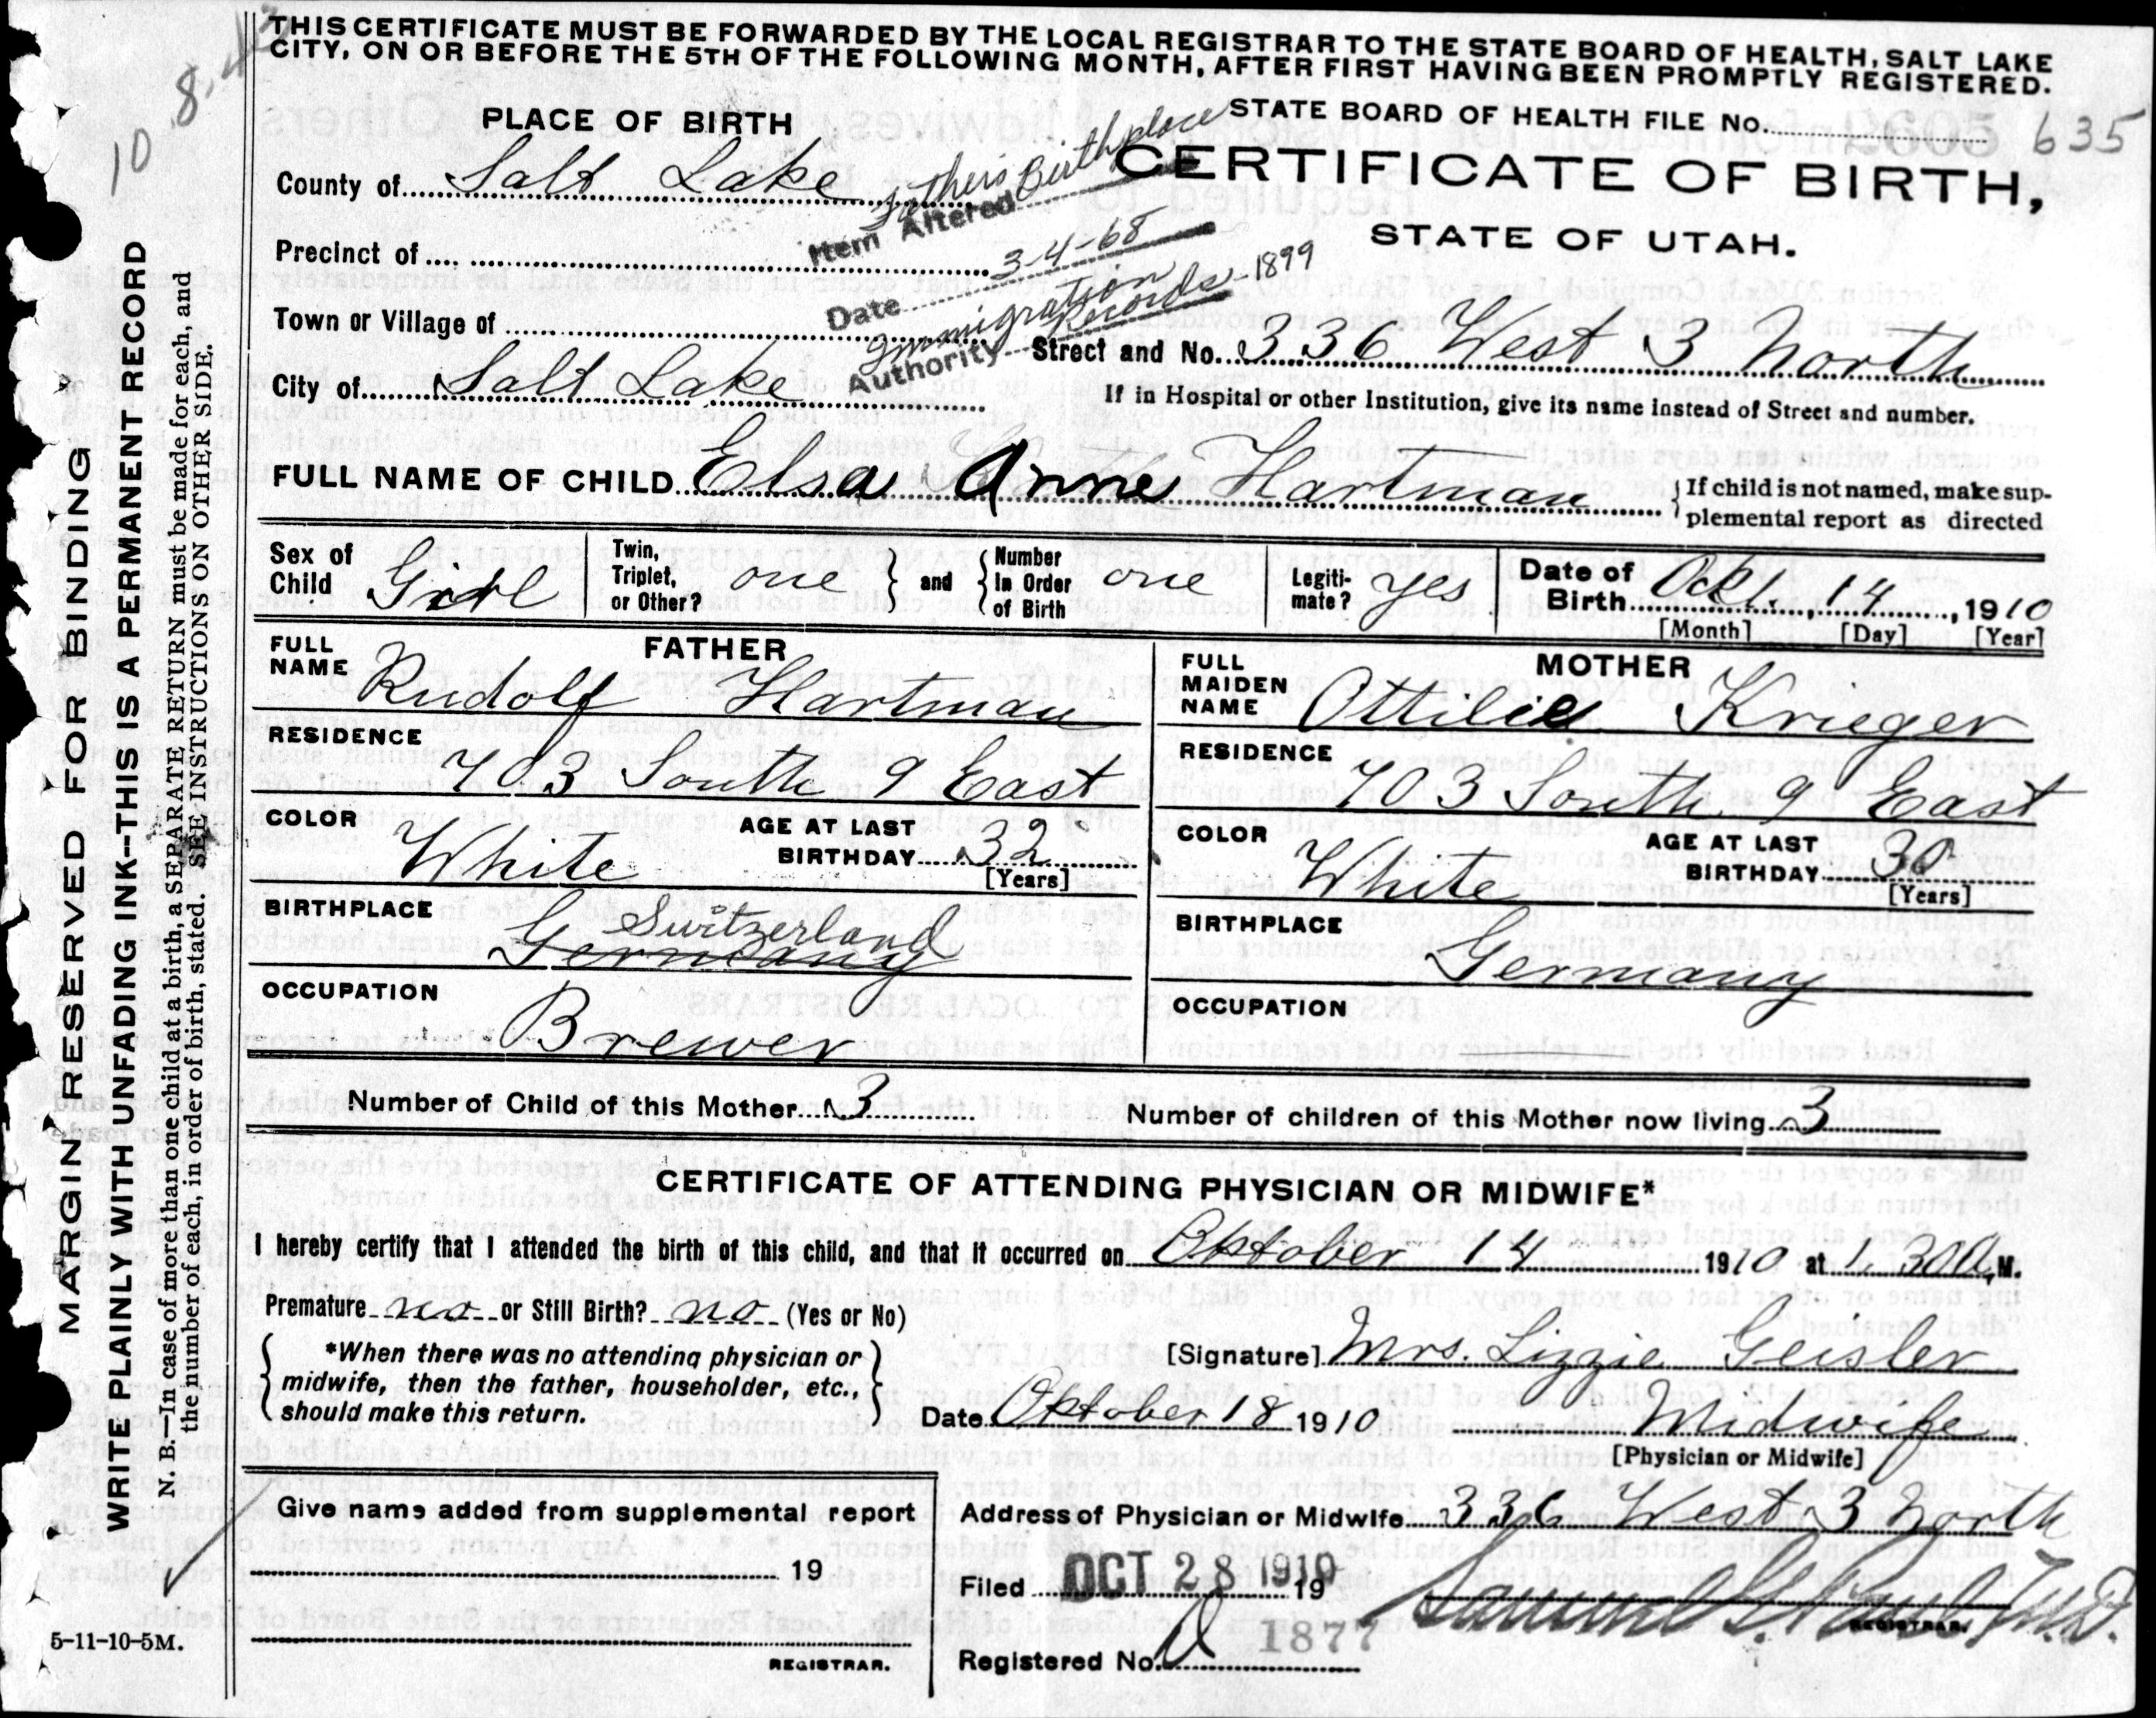 THIS CERTIFICATE MUST BE FORWARDED BY THE LOCAL REGISTRAR TO THE STATE BOARD OF HEALTH, SALT LAKE
CITY, ON OR BEFORE THE 5TH OF THE FOLLOWING MONTH, AFTER FIRST HAVING BEEN PROMPTLY REGISTERED.
10 8
STATE BOARD OF HEALTH FILE No. 635
PLACE OF BIRTH
CERTIFICATE OF BIRTH,
STATE OF UTAH.
County of Salt Lake
Precinct of
Town or Village of
City of Salt Lake
Item Altered Father's Birthplace
Date 3-4-68
Authority Immigration Records-1899
Street and No. 336 West 3 North
If in Hospital or other Institution, give its name instead of Street and number.
FULL NAME OF CHILD Elsa Anne Hartman
{If child is not named, make sup-
plemental report as directed
Sex of Child Girl
Twin, Triplet, or Other? one } and { Number In Order of Birth one
Legiti-mate? yes
Date of Birth Oct. 14, 1910
[Month] [Day] [Year]
FATHER
FULL NAME Rudolf Hartman
RESIDENCE 703 South 9 East
COLOR White AGE AT LAST BIRTHDAY 32 [Years]
BIRTHPLACE Switzerland
Germany
OCCUPATION Brewer
MOTHER
FULL MAIDEN NAME Ottilie Krieger
RESIDENCE 703 South 9 East
COLOR White AGE AT LAST BIRTHDAY 30 [Years]
BIRTHPLACE Germany
OCCUPATION
Number of Child of this Mother 3 Number of children of this Mother now living 3
CERTIFICATE OF ATTENDING PHYSICIAN OR MIDWIFE*
I hereby certify that I attended the birth of this child, and that it occurred on Oktober 14 1910 at 1.30 A, M.
Premature no or Still Birth? no (Yes or No)
{ *When there was no attending physician or
midwife, then the father, householder, etc.,
should make this return. }
[Signature] Mrs. Lizzie Geisler
Date Oktober 18 1910 Midwife
[Physician or Midwife]
Give name added from supplemental report
19
REGISTRAR.
Address of Physician or Midwife 336 West 3 North
Filed OCT 28 1910 19
REGISTRAR.
Registered No. 1877
5-11-10-5M.
MARGIN RESERVED FOR BINDING
WRITE PLAINLY WITH UNFADING INK--THIS IS A PERMANENT RECORD
N. B.—In case of more than one child at a birth, a SEPARATE RETURN must be made for each, and
the number of each, in order of birth, stated. SEE INSTRUCTIONS ON OTHER SIDE.